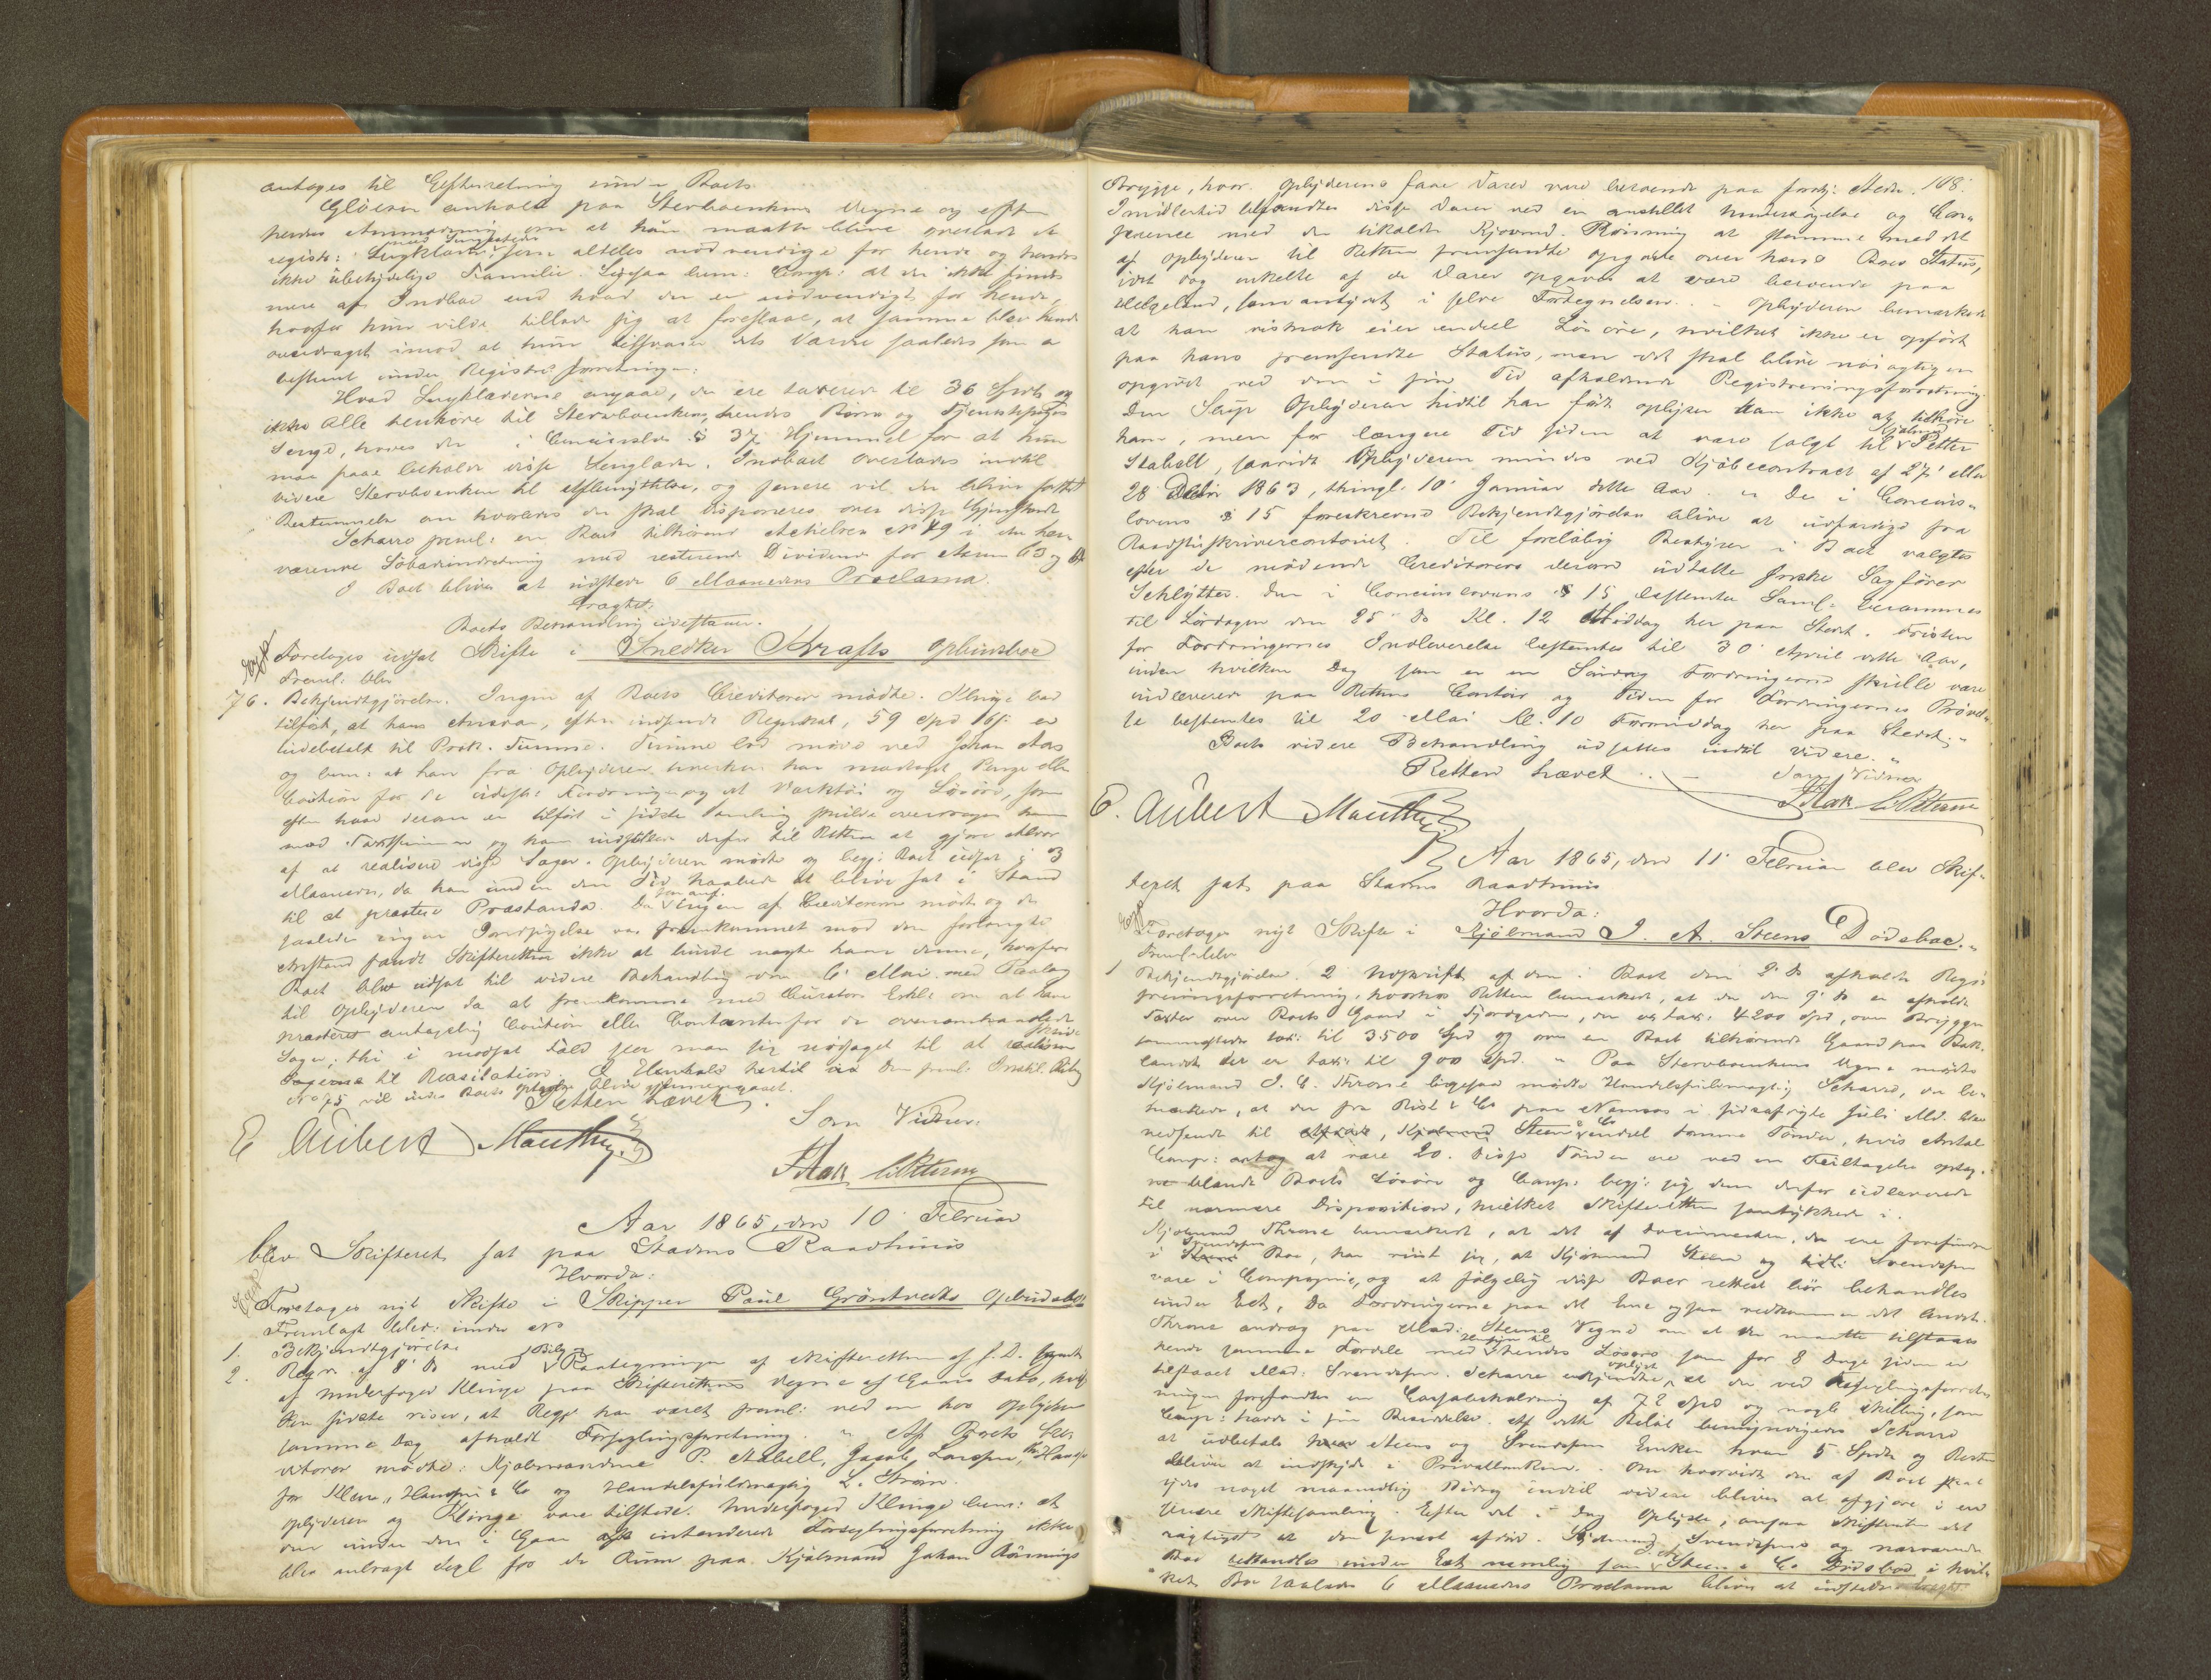 antages til Efterretning under Boets
Gløersen anholdt paa Sterboenkens Vegne og efter
hendes Anmodning om at hun maatte blive overladt de
med Sengesteder
registr: Sengklæder som aldeles nødvendige for hende og hendes
ikke ubetydelige Familie. Ligesaa bem: Comp: at der ikke findes
mere af Indbo end hvad der er nødvendigt for hende,
hvorfor hun vilde tillade sig at foreslaae, at samme blev hende
overdraget imod at hun tilsvarer dets Værdie saaledes som
bestemt under Registr: forretningen.
Hvad Sengklæderne angaae, der ere taxerede til 36 Spd og
ikke alle henhøre til Stervboenkens, hendes Børn og Tjenestepiges
Senge, haves der i Concursloven § 37 Hjemmel for at hun
maa faae beholde disse Sengklæder. Indboet overlades indtil
videre Stervboenken til Afbenyttelse, og senere vil der blive fattet
Bestemmelse om hvorledes der skal disponeres over disse Gjenstande
Scharro freml: en Boet tilhørende Actie No 49 i den her
værende Søbadindretning med resterende Dividende for Aarene 63 og 64
I Boet bliver at udstede 6 Maaneders Proclama.
Boets Behandling udestaaer.
Foretoges udsat Skifte i Snedker Krafts Opbudsboe
Freml: blev
76. Bekjendtgjørelse. Ingen af Boets Creditorer mødte. Klinge bad
tilført, at hans Ansvar, efter indsendt Regnskab, 59 Spd 16 s: er
indebetalt til Prok. Tumme. Tumme lod møde ved Johan Aas
og bem: at han fra Opbyderen hverken har modtaget Penge eller
Caution for de udest: Fordringer og at Værktøi og Løsøre, som
efter hvad derom er tilført i sidste Samling skulde overdrages ham
mod Taxtsummen og han indstiller derfor til Retten at gjøre Alvor
af at realisere disse Sager. Opbyderen mødte og begj: Boet udsat i 3
Maaneder, da han inden den Tid haabede at blive sat i Stand
til at præstere Præstanda. Da ingen af Creditorerne mødte og der
saaledes ingen Indsigelse var fremkommet mod den forlangte
Anstand fandt Skifteretten ikke at burde nægte ham denne, hvorfor
Boet blev udsat til videre Behandling den 6 Mai med Paalæg
til Opbyderen da at fremkomme med Curators Erkl: om at have
præsteret antagelig Caution eller Contanter for de ovenomhandlede
Sager; thi i modsat Fald seer man sig nødsaget til at skride
Sagerne til Realisation. I Henhold hertil
No 75 vil under Boets Opgjør blive gjennemgaaet.
Retten hævet.
Som Vidner:
E Aubert Manthey
Stak C Petersen
Aar 1865, den 10 Februar
blev Skifteret sat paa Stadens Raadhuus
Hvorda:
Foretages nyt Skifte i Skipper Paul Grøntvedts Opbudsboe
Fremlagt blev: under No
1. Bekjendtgjørelse
2. Regr. af 8 ds med Bilag Paategninger af Skifteretten af s. D.
af Underfoged Klinge paa Skifterettens Vegne af Gaars Dato, hvilk
den sidste viser, at Regr har været freml: ved en hos Opbyderen
samme Dag afholdt Forseglingsforretning. " Af Boets Cre-
ditorer mødte: Kjøbmændene P. Stabell, Jacob Larssen,
for Klem, Hanssen & Co og Handelsfuldmægtig L. Strøm.
Opbyderen og Klinge vare tilstede. Underfoged Klinge bem: at
der under den i Gaar intenderede Forseglingsforretning ikke
blev anbragt Segl for de Rum paa Kjøbmand Johan Rønnings
Brygge, hvor Opbyderens faae Varer vare beroende paa forskj: Steder. 108.
Imidlertid befandtes disse Varer ved en anstillet Undersøgelse og Con-
ference med den tilkaldte Kjøbmd. Rønning at stemme med det
af Opbyderen til Retten fremsendte Opgjøde over hans Boes Status,
idet dog enkelte af de Varer opgaves at være beroende paa
Helgeland, som antydet i selve Fortegnelsen. - Opbyderen bemærkede
at han vistnok eier endeel Løsøre, hvilket ikke er opført
paa hans fremsendte Status, men det skal blive nøiagtigen
opgivet ved den i sin Tid afholdende Registreringsforretning.
Den Slup Opbyderen hidtil har ført oplyser han ikke at tilhøre
Kjøbmd
ham, men for længere Tid siden at være solgt til Petter
Stabell, saavidt Opbyderen mindes ved Kjøbecontract af 27 eller
28 Decbr 1863, thingl. 10 Januar dette Aar. " De i Concurs-
lovens § 15 foreskrevne Bekjendtgjørelser blive at udfærdige fra
Raadstueskrivercontoiret. Til foreløbig Bestyrer i Boet valgtes
efter de mødende Creditorers derom udtalte Ønske Sagfører
Schlytter. Den i Concurslovens § 15 bestemte Saml: berammes
til Lørdagen den 25 ds Kl. 12 Middag her paa Stedet. Fristen
for Fordringernes Indleverelse bestemtes til 30 April dette Aar,
inden hvilken Dag som er en Søndag Fordringerne skulle være
indleverede paa Rettens Contoir og Tiden for Fordringernes Prøvel-
se bestemtes til 20 Mai Kl. 10 Formiddag her paa Stedet. "
Boets videre Behandling udsattes indtil videre. "
Retten hævet. -
Som Vidner
E. Aubert Manthey
Stak C Petersen
Aar 1865, den 11 Februar blev Skif-
teret sat paa Stadens Raadhuus
Hvorda:
Foretages nyt Skifte i Kjøbmand I. A. Steens Dødsboe. "
Freml: blev
1 Bekjendtgjørelse. 2 Udskrift af den i Boet den 2 ds afholdte Regi-
streringsforretning, hvorhos Retten bemærkede, at der den 9 ds er afholdt
Taxter over Boets Gaard i Fjordgaden, der er tax: 4200 Spd, over Brygge
sammesteds tax: til 3500 Spd og over en Boet tilhørende Gaard paa Bak-
landet der er tax: til 900 Spd. " Paa Stervboenkens Vegne mødte
Kjøbmand I. C. Throne ligesaa mødte Handelsfuldmægtig Scharro, der be-
mærkede, at der fra Rist & Co paa Namsos i sidstafvigte Juli Md. blev
nedsendt til Steen & Co endeel tomme Tønder, hvis Antal
Comp: antog at være 20. Disse Tønder ere ved en Feiltagelse optag-
ne blandt Boets Løsøre og Comp: begj: sig dem derfor udleverede
til nærmere Disposition, hvilket Skifteretten samtykkede i.
Kjøbmand Throne bemærkede, at det af Documenter, der ere forefundne
Svendsens
i Boe, har viist sig, at Kjøbmand Steen og Svendsen
vare i Compagnie, og at følgelig disse Boer rettest bør behandles
under Eet, da Fordringerne paa det Ene ogsaa vedkommer det Andet.
Throne androg paa Mad: Steens Vegne om at der maatte tilstaaes
Hensyn til
hende samme Fordele med hendes Løsøre som for 8 Dage siden er
tilstaaet Mad: Svendsen. Scharro at der ved Forseglingsforret-
ningen forefandtes en Cassabeholdning af 72 Spd og nogle Skilling, som
Comp: havde i sin Besiddelse. Af dette Beløb bemyndigedes Scharro
at udbetale Steens og Svendsens Enker hver 5 Spd og Resten
bliver at indskyde i Privatbanken. Om hvorvidt der af Boet skal
ydes noget maanedlig Bidrag indtil videre bliver at afgjøre i en
senere Skiftesamling. Efter det i Dag Oplyste, ansaa Skifteretten det
rigtigst at den først afdøde Kjøbmand Svendsens og nærværende
Boe behandles under Eet nemlig som I. A. Steen & Co Dødsboe i hvil-
ket Boe saaledes 6 Maaneders Proclama bliver at udstede